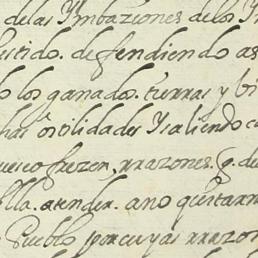 de las Ymbaziones de los Y
ustido. defendiendo as
o los ganados. tierras y bi
has ostilidades Ysaliendo c
uesco frezen, rrazones. q. de
lla. atender. ano quitarn
Pueblo por cuyas rrazon